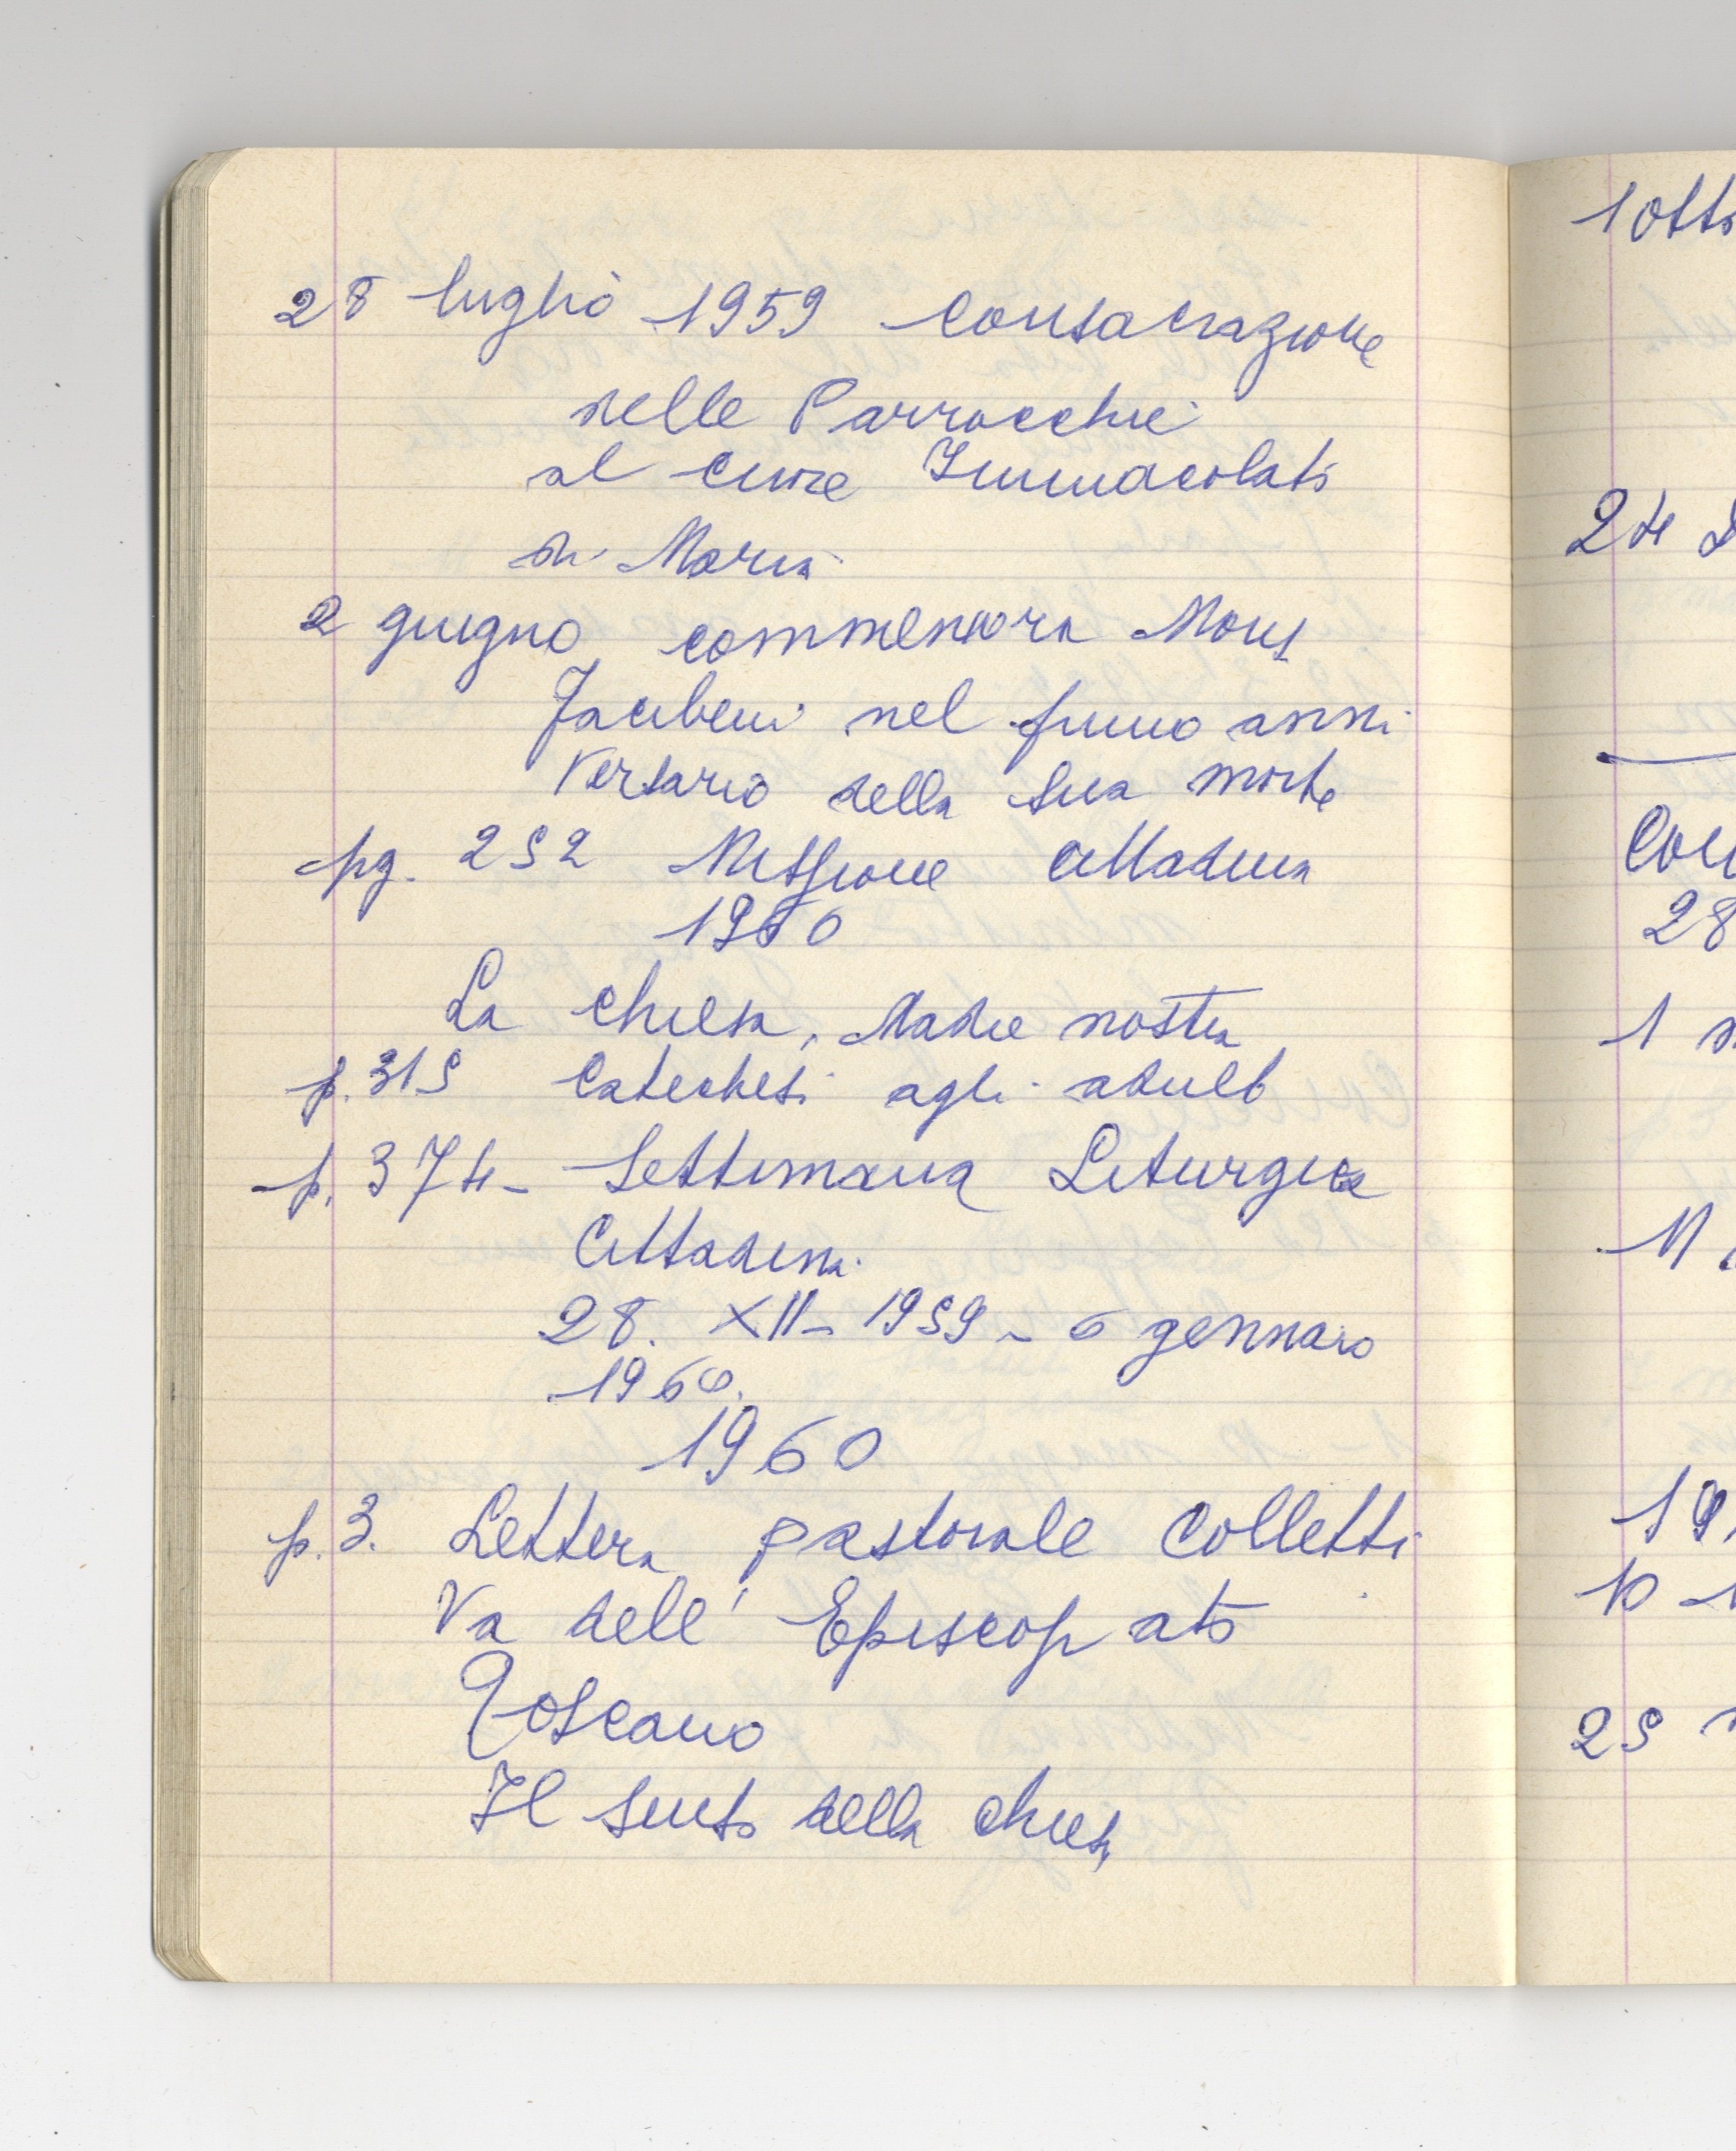 28 luglio 1959 Consacrazione
nelle Parrocchie
al cuore Immacolato
di Maria
2 giugno commemora Mons
nel primo anni
versario della sua morte
pg. 252 Missione cittadina
1960
La chiesa, Madre nostra
p. 315 Catechesi agli adulti
p. 374 - Settimana Liturgica
Cittadina
28. XII - 1959 - 6 gennaio
1960.
1960
p. 3. Lettera pastorale Colletti
va dell' Episcopato
Toscano
Il senso della chiesa
1 otto
24
28
1
11
19
10
25